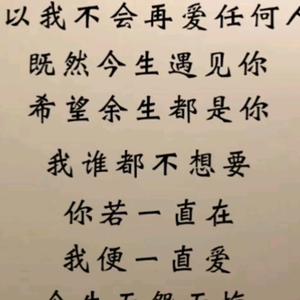 以我不会再爱任何人
既然今生遇见你
希望余生都是你
我谁都不想要
你若一直在
我便一直爱
今生无怨无悔